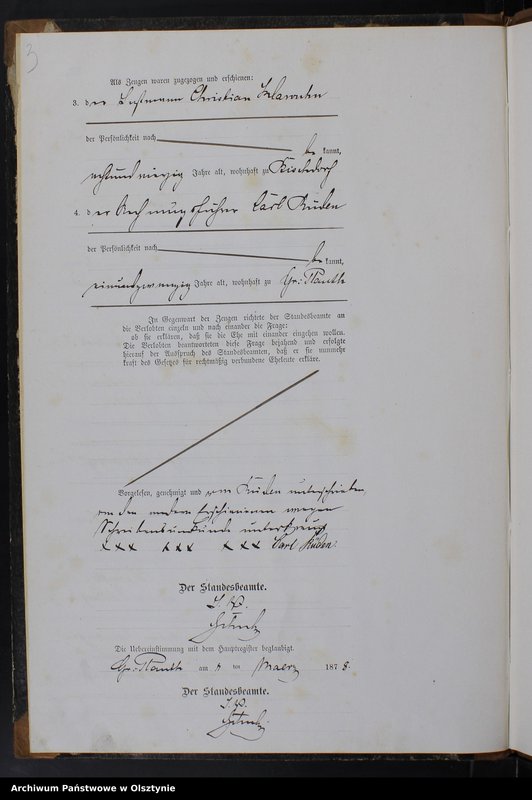 3
Als Zeugen waren zugezogen und erschienen:
3. der Losmann Christian
der Persönlichkeit nach
be kannt,
achtundvierzig Jahre alt, wohnhaft zu
4. der Rechnungsführer Carl Rüden
der Persönlichkeit nach
be kannt,
einundzwanzig Jahre alt, wohnhaft zu Gr: Plauth
In Gegenwart der Zeugen richtete der Standesbeamte an
die Verlobten einzeln und nach einander die Frage:
ob sie erklären, daß sie die Ehe mit einander eingehen wollen.
Die Verlobten beantworteten diese Frage bejahend und erfolgte
hierauf der Ausspruch des Standesbeamten, daß er sie nunmehr
kraft des Gesetzes für rechtmäßig verbundene Eheleute erkläre.
Vorgelesen, genehmigt und vom Rüden unterschrieben,
von den andern Erschienenen wegen
Schreibensunkunde unterkreuzt
xxx xxx xxx Carl Rüden.
Der Standesbeamte.
I. V.
Die Uebereinstimmung mit dem Hauptregister beglaubigt.
Gr: Plauth am ten Maerz 1878.
Der Standesbeamte.
I. V.
Archiwum Państwowe w Olsztynie